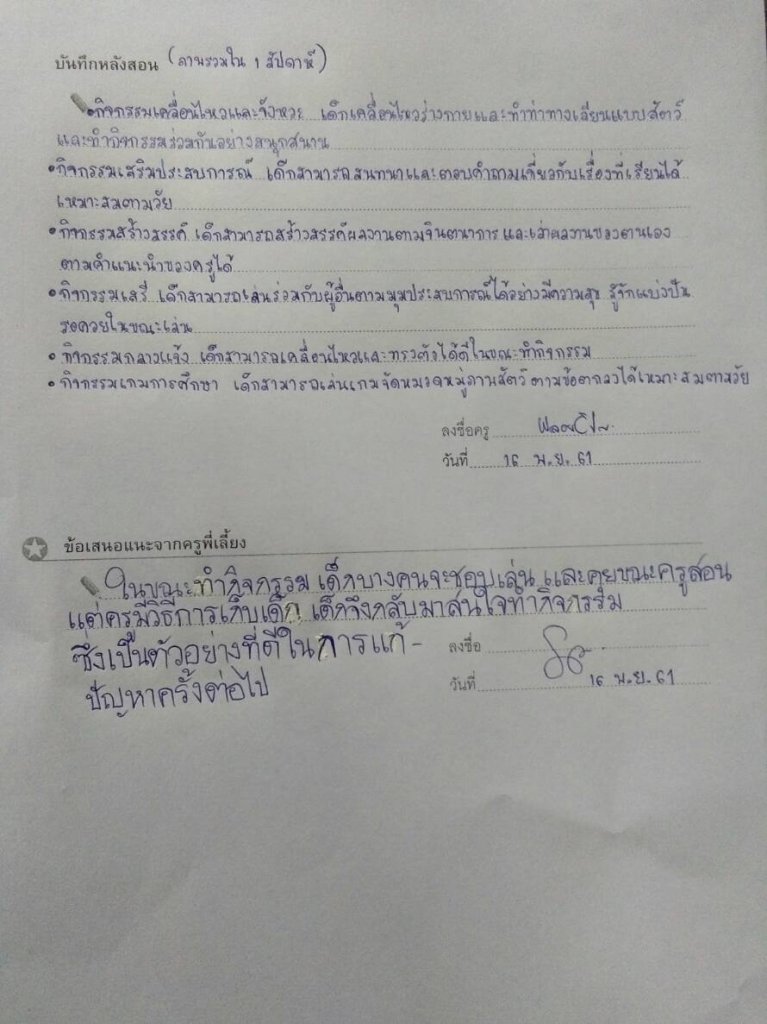 บันทึกหลังสอน (ภาพรวมใน 1 สัปดาห์)
•กิจกรรมเคลื่อนไหวและจังหวะ เด็กเคลื่อนไหวร่างกายและทำท่าทางเลียนแบบสัตว์
และทำกิจกรรมร่วมกันอย่างสนุกสนาน
•กิจกรรมเสริมประสบการณ์ เด็กสามารถสนทนาและตอบคำถามเกี่ยวกับเรื่องที่เรียนได้
เหมาะสมตามวัย
•กิจกรรมสร้างสรรค์ เด็กสามารถสร้างสรรค์ผลงานตามจินตนาการ และเล่าผลงานของตนเอง
ตามคำแนะนำของครูได้
•กิจกรรมเสรี เด็กสามารถเล่นร่วมกับผู้อื่นตามมุมประสบการณ์ได้อย่างมีความสุข รู้จักแบ่งปัน
รอคอยในขณะเล่น
•กิจกรรมกลางแจ้ง เด็กสามารถเคลื่อนไหวและทรงตัวได้ดีในขณะทำกิจกรรม
•กิจกรรมเกมการศึกษา เด็กสามารถเล่นเกมจัดหมวดหมู่ภาพสัตว์ ตามข้อตกลงได้เหมาะสมตามวัย
ลงชื่อครู
วันที่ 16 พ.ย. 61
ข้อเสนอแนะจากครูพี่เลี้ยง
ในขณะทำกิจกรรม เด็กบางคนจะชอบเล่น และคุยขณะครูสอน
แต่ครูมีวิธีการเก็บเด็ก เด็กจึงกลับมาสนใจทำกิจกรรม
ซึ่งเป็นตัวอย่างที่ดีในการแก้-
ลงชื่อ
ปัญหาครั้งต่อไป
วันที่ 16 พ.ย. 61